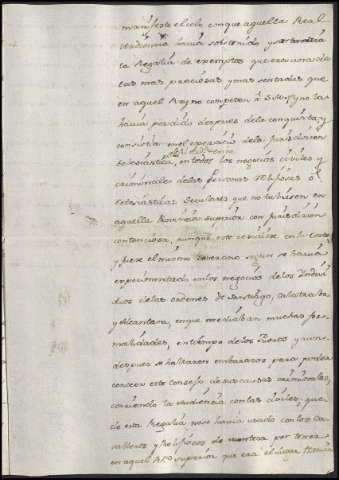 manifieste el celo con que aquella Real
Audiencia havia sostenido
la Regalia de exemptos que era una de
las mas preciosas y mas sentadas que
en aquel Reyno competen à S. M. y no la
havia perdido despues de la conquista; y
consistia en el exercicio de la jurisdiccion
eclesiastica, en todos los negocios civiles y
criminales de las personas Religiosas ò
Eclesiasticas Seculares que no tubiesen en
aquella Provincia superior con jurisdiccion
contenciosa, aunque este residiese en la Corte
y fuese el mismo Soberano segun se havia
experimentado en los negocios de los Yndivi
duos de las ordenes de Santiago, Calatrava
y Alcantara, en que mediaban muchas for
malidades, en tiempo de los Fueros y aunque
despues se hallaron embarazos para poder
conocer este Consejo de sus causas criminales,
corriendo la Audiencia con las civiles: que
de esta Regalia no se havia usado con los Ca
valleros y Religiosos de Montesa por tener
en aquel Rno superior que era el Lugar Theniente